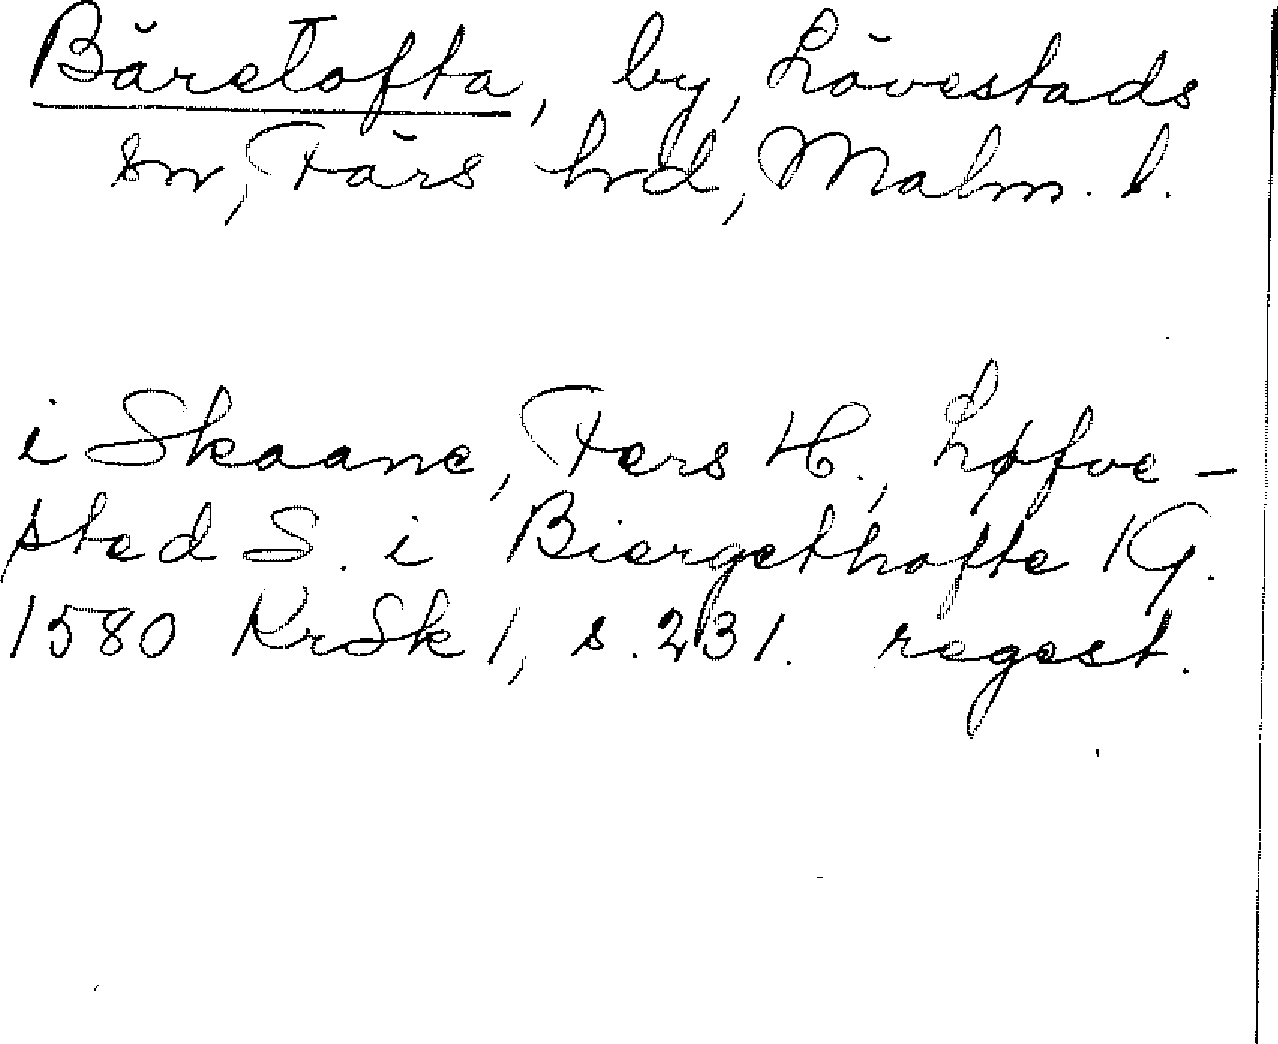 Bäretofta, by, Lövestads
sn, Färs hrd, Malm. l.
i Skaane, Fers H., Løfve-
sted S. i Biergethofte 1 G.
1580 KrSk 1, s. 231. regest.